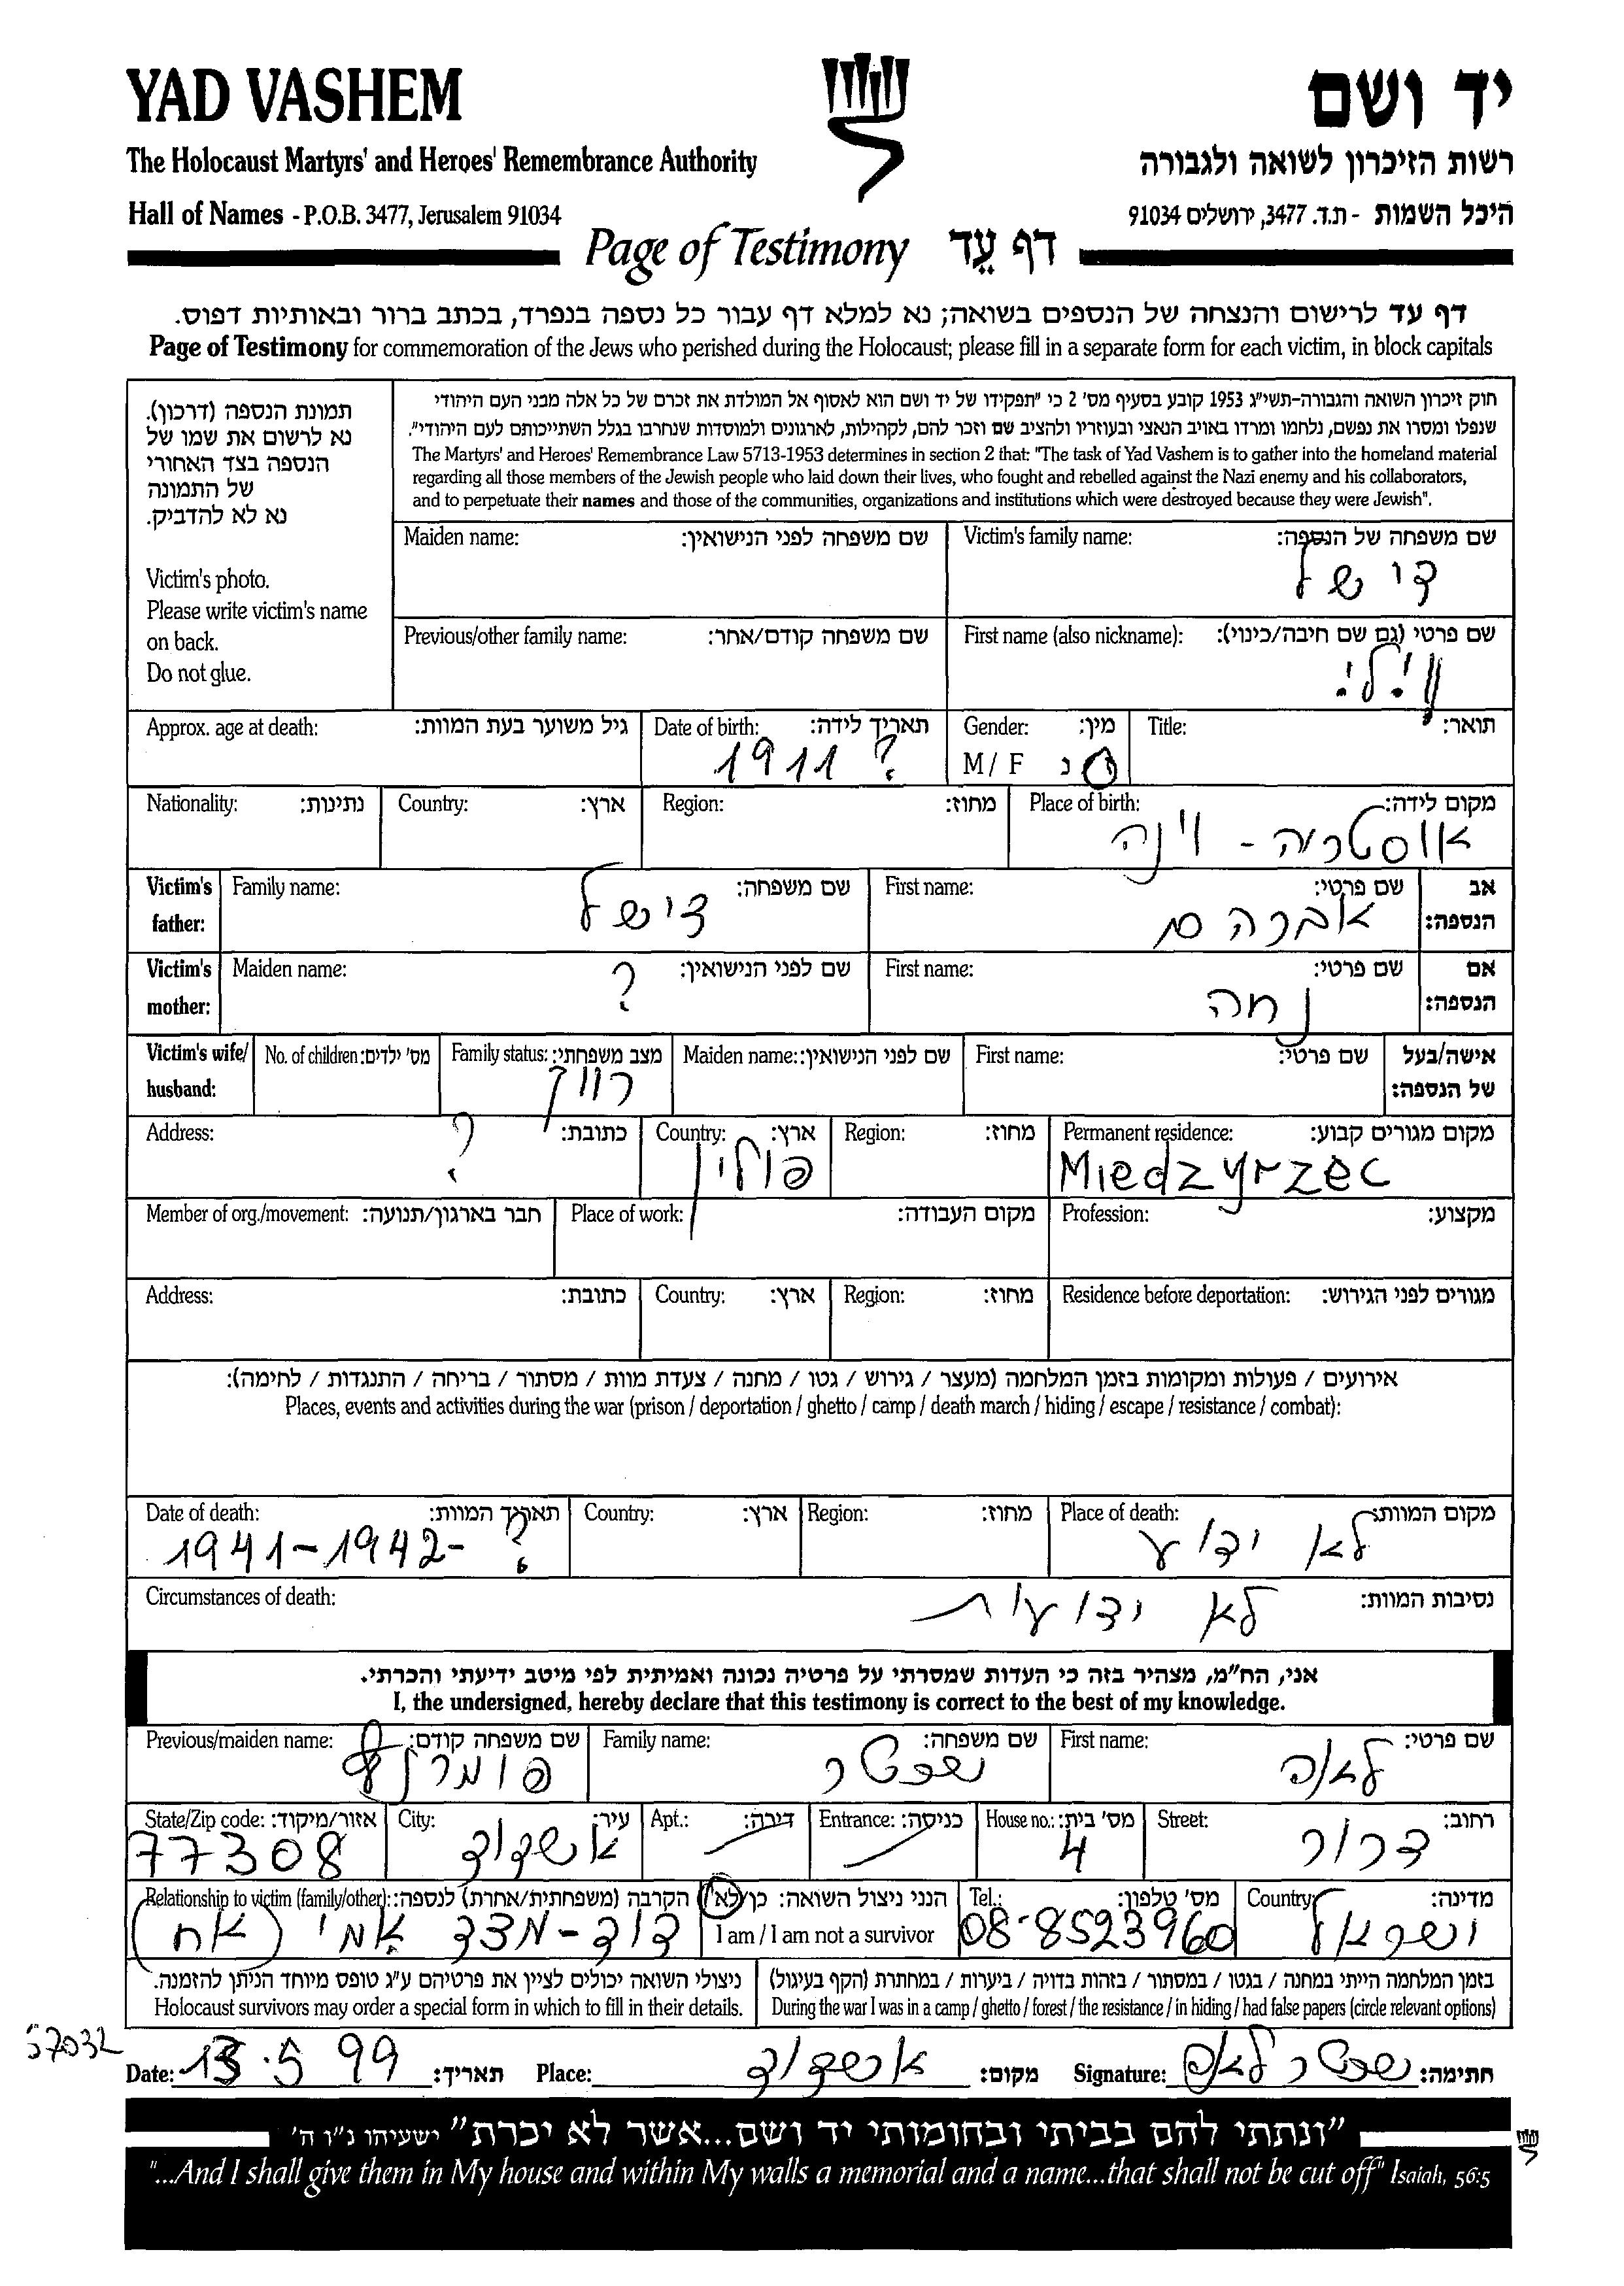 YAD VASHEM
יד ושם
The Holocaust Martyrs' and Heroes' Remembrance Authority
רשות הזיכרון לשואה ולגבורה
Hall of Names - P.O.B. 3477, Jerusalem 91034
היכל השמות - ת.ד. 3477, ירושלים 91034
Page of Testimony דף עֵד
דף עד לרישום והנצחה של הנספים בשואה; נא למלא דף עבור כל נספה בנפרד, בכתב ברור ובאותיות דפוס.
Page of Testimony for commemoration of the Jews who perished during the Holocaust; please fill in a separate form for each victim, in block capitals
תמונת הנספה (דרכון).
נא לרשום את שמו של
הנספה בצד האחורי
של התמונה
נא לא להדביק.
Victim's photo.
Please write victim's name
on back.
Do not glue.
חוק זיכרון השואה והגבורה-תשי"ג 1953 קובע בסעיף מס' 2 כי "תפקידו של יד ושם הוא לאסוף אל המולדת את זכרם של כל אלה מבני העם היהודי
שנפלו ומסרו את נפשם, נלחמו ומרדו באויב הנאצי ובעוזריו ולהציב שם וזכר להם, לקהילות, לארגונים ולמוסדות שנחרבו בגלל השתייכותם לעם היהודי".
The Martyrs' and Heroes' Remembrance Law 5713-1953 determines in section 2 that: "The task of Yad Vashem is to gather into the homeland material
regarding all those members of the Jewish people who laid down their lives, who fought and rebelled against the Nazi enemy and his collaborators,
and to perpetuate their names and those of the communities, organizations and institutions which were destroyed because they were Jewish".
Victim's family name: שם משפחה של הנספה:
דישל
Maiden name: שם משפחה לפני הנישואין:
First name (also nickname): שם פרטי (גם שם חיבה/כינוי):
ווילי
Previous/other family name: שם משפחה קודם/אחר:
Title: תואר:
Gender: מין:
M / F ז נ
Date of birth: תאריך לידה:
1911 ?
Approx. age at death: גיל משוער בעת המוות:
Place of birth: מקום לידה:
אוסטריה - וינה
Region: מחוז:
Country: ארץ:
Nationality: נתינות:
Victim's father: אב הנספה:
First name: שם פרטי:
אברהם
Family name: שם משפחה:
דישל
Victim's mother: אם הנספה:
First name: שם פרטי:
נחה
Maiden name: שם לפני הנישואין:
?
Victim's wife/ husband: אישה/בעל של הנספה:
First name: שם פרטי:
Maiden name: שם לפני הנישואין:
Family status: מצב משפחתי:
רווק
No. of children: מס' ילדים:
Permanent residence: מקום מגורים קבוע:
Miedzyrzec
Region: מחוז:
Country: ארץ:
פולין
Address: כתובת:
?
Profession: מקצוע:
Place of work: מקום העבודה:
Member of org./movement: חבר בארגון/תנועה:
Residence before deportation: מגורים לפני הגירוש:
Region: מחוז:
Country: ארץ:
Address: כתובת:
אירועים / פעולות ומקומות בזמן המלחמה (מעצר / גירוש / גטו / מחנה / צעדת מוות / מסתור / בריחה / התנגדות / לחימה):
Places, events and activities during the war (prison / deportation / ghetto / camp / death march / hiding / escape / resistance / combat):
Place of death: מקום המוות:
לא ידוע
Region: מחוז:
Country: ארץ:
Date of death: תאריך המוות:
1941-1942- ?
Circumstances of death: נסיבות המוות:
לא ידועות
אני, הח"מ, מצהיר בזה כי העדות שמסרתי על פרטיה נכונה ואמיתית לפי מיטב ידיעתי והכרתי.
I, the undersigned, hereby declare that this testimony is correct to the best of my knowledge.
First name: שם פרטי:
לאה
Family name: שם משפחה:
שכטר
Previous/maiden name: שם משפחה קודם:
Street: רחוב:
דרור
House no.: מס' בית:
4
Entrance: כניסה:
Apt.: דירה:
City: עיר:
אשדוד
State/Zip code: אזור/מיקוד:
77308
Country: מדינה:
ישראל
Tel.: מס' טלפון:
08-8523960
הנני ניצול השואה: כן/לא
I am / I am not a survivor
Relationship to victim (family/other): הקרבה (משפחתית/אחרת) לנספה:
דוד-מצד אמי (אח)
בזמן המלחמה הייתי במחנה / בגטו / במסתור / בזהות בדויה / ביערות / במחתרת (הקף בעיגול)
During the war I was in a camp / ghetto / forest / the resistance / in hiding / had false papers (circle relevant options)
ניצולי השואה יכולים לציין את פרטיהם ע"ג טופס מיוחד הניתן להזמנה.
Holocaust survivors may order a special form in which to fill in their details.
57032
Date: 13.5 99 תאריך:
Place: אשדוד מקום:
Signature: שכטר לאה חתימה:
"ונתתי להם בביתי ובחומותי יד ושם...אשר לא יכרת" ישעיהו נ"ו ה'
"...And I shall give them in My house and within My walls a memorial and a name...that shall not be cut off" Isaiah, 56:5